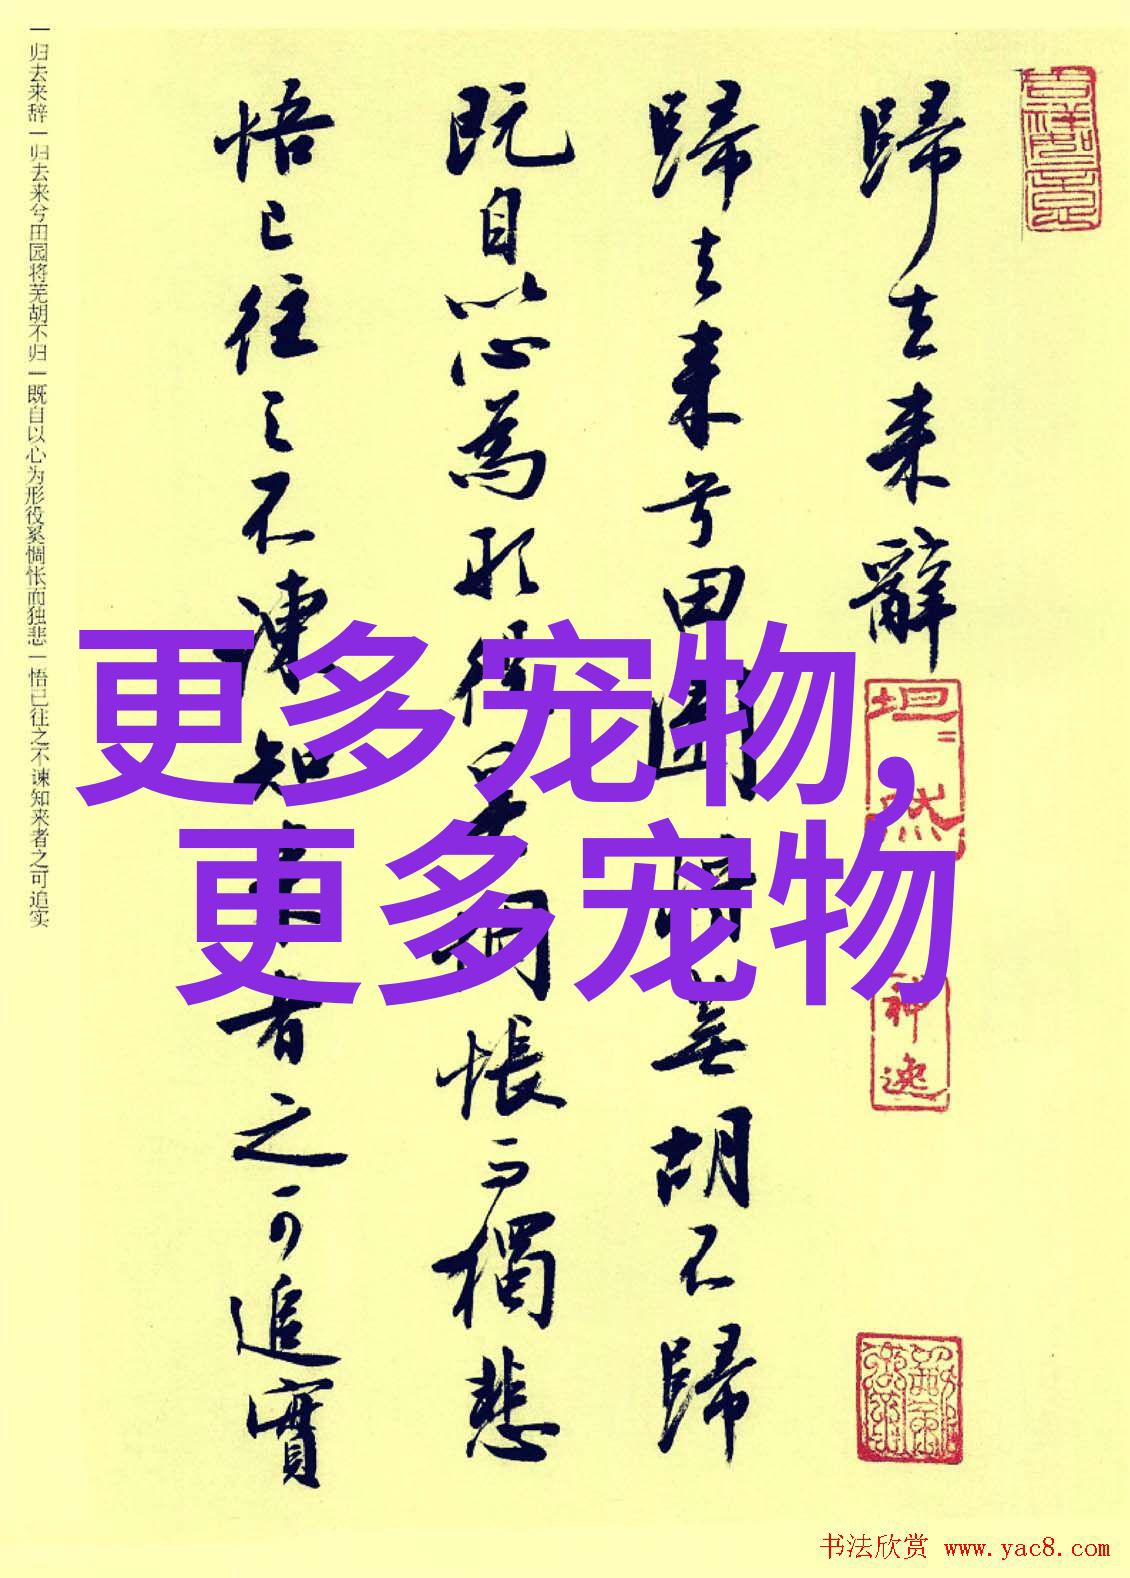 歸去来辭
歸去来兮田園将蕪胡不歸
既自以心為形役奚惆悵而獨悲
悟已往之不諫知来者之可追實
一归去来辞一归去来兮田园将芜胡不归一既自以心为形役奚惆怅而独悲一悟已往之不谏知来者之可追实
更多宠物,
更多宠物
坦=然
神逸
书法欣赏 www.yac8.com